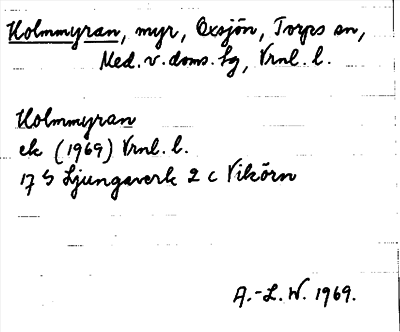 Holmmyran, myr, Oxsjön, Torps sn,
Med. v. doms. lg, Vrnl. l.
Holmmyran
ek (1969) Vrnl. l.
17 G Ljungaverk 2 c Vikörn
A.-L. W. 1969.